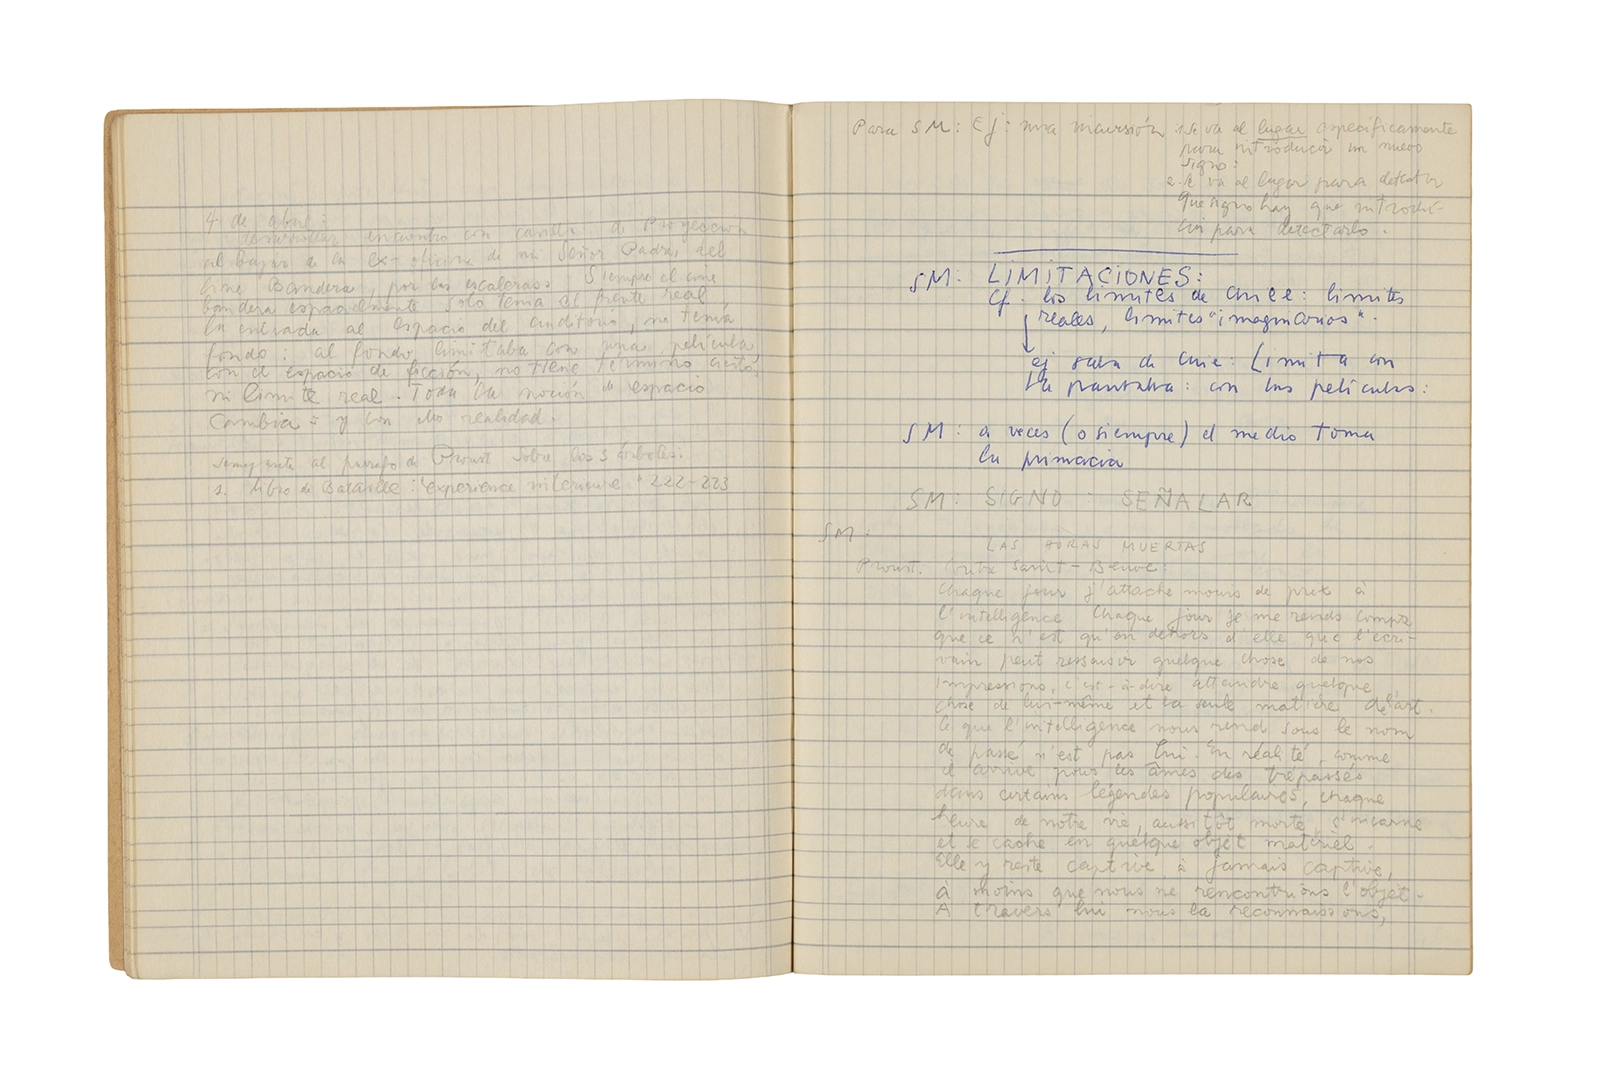 4 de abril:
desarrollar encuentro con casilla de Proyección
al bajar de la ex-oficina de mi Señor Padre, del
Cine Bandera, por las escaleras. Siempre el cine
bandera espacialmente solo tenía el frente real,
la entrada al espacio del auditorio, no tenía
fondo: al fondo limitaba con una película,
con el espacio de ficción, no tiene término cierto,
ni límite real. Toda la noción de espacio
cambia: y con ello realidad.
semejante al párrafo de Proust sobre los 3 árboles.
1. libro de Bataille: "experience interieure" 222-223
Para SM: Ej: una incursión 1. se va al lugar específicamente
para introducir un nuevo
signo:
2. se va al lugar para detectar
que signo hay que introdu-
cir para detectarlo.
SM: LIMITACIONES:
Cf. los límites de Chile: límites
reales, límites "imaginarios".
ej sala de cine: Limita con
la pantalla: con las películas:
SM: a veces (o siempre) el medio toma
la primacía
SM: SIGNO : SEÑALAR
SM:
LAS HORAS MUERTAS
Proust. Contre Saint-Beuve:
Chaque jour j'attache moins de prix à
l'intelligence. Chaque jour je me rends compte
que ce n'est qu'en dehors d'elle que l'écri-
vain peut ressaisir quelque chose de nos
impressions, c'est-à-dire atteindre quelque
chose de lui-même et la seule matière de l'art.
Ce que l'intelligence nous rend sous le nom
de passé n'est pas lui. En réalité, comme
il arrive pour les âmes des trépassés
dans certaines légendes populaires, chaque
heure de notre vie, aussitôt morte, s'incarne
et se cache en quelque objet matériel.
Elle y reste captive, à jamais captive,
à moins que nous ne rencontrions l'objet.
A travers lui nous la reconnaissons,